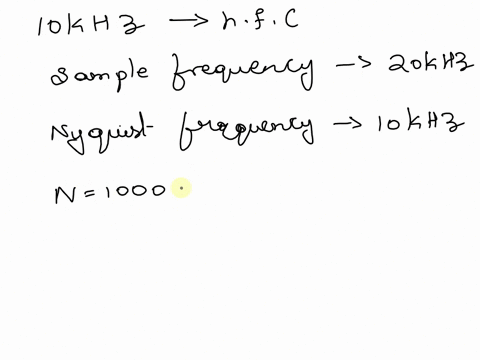 10kHz → h.f.C
Sample frequency → 20kHz
Nyquist frequency → 10kHz
N = 1000